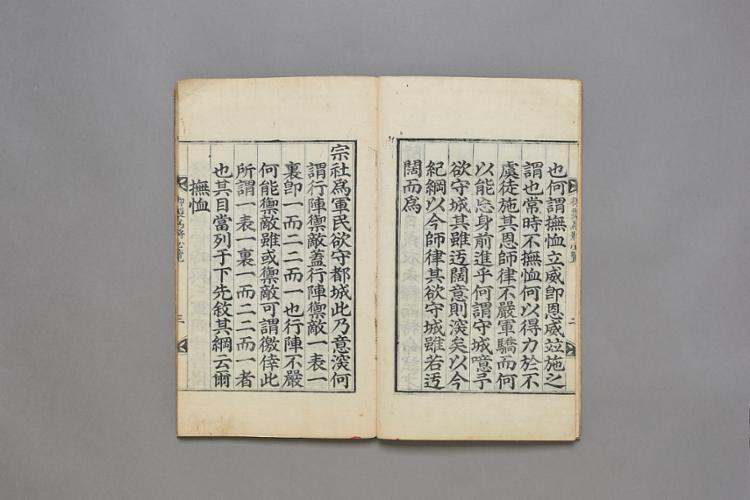 也何謂撫恤立威卽恩威竝施之
謂也常時不撫恤何以得力於不
虞徒施其恩師律不嚴軍驕而何
以能忘身前進乎何謂守城噫予
欲守城其雖迃闊意則深矣以今
紀綱以今師律其欲守城雖若迃
闊而爲
宗社爲軍民欲守都城此乃意深何
謂行陣禦敵蓋行陣禦敵一表一
裏卽一而二二而一也行陣不嚴
何能禦敵雖或禦敵可謂徼倖此
所謂一表一裏一而二二而一者
也其目當列于下先敘其綱云爾
撫恤
三